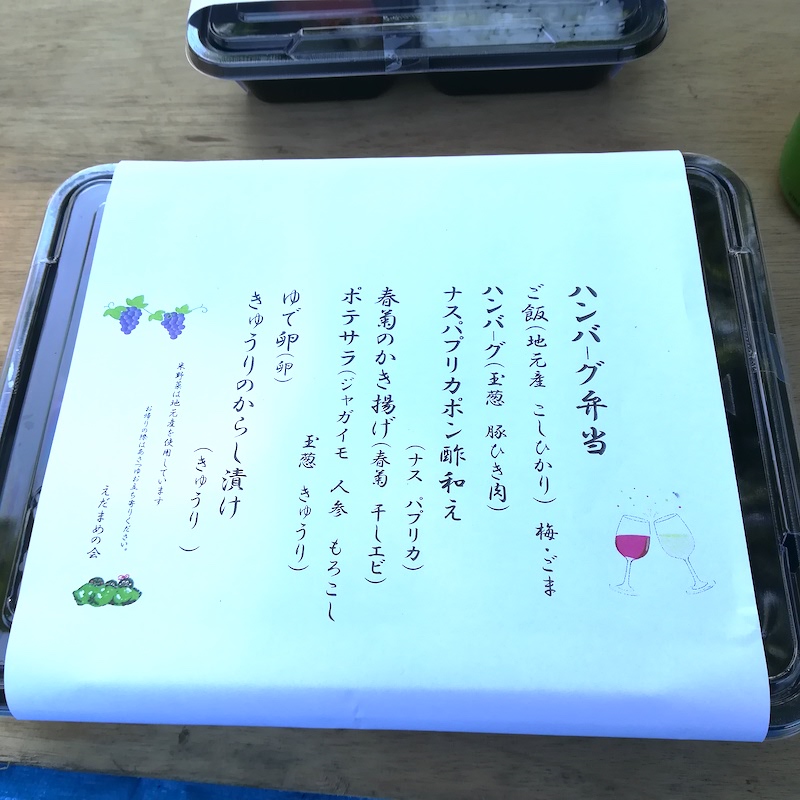 ハンバーグ弁当
ご飯(地元産 こしひかり) 梅・ごま
ハンバーグ(玉葱 豚ひき肉)
ナスパプリカポン酢和え
(ナス パプリカ)
春菊のかき揚げ(春菊 干しエビ)
ポテサラ(ジャガイモ 人参 もろこし
玉葱 きゅうり)
ゆで卵(卵)
きゅうりのからし漬け
(きゅうり)
米野菜は地元産を使用しています
お帰りの際はあさつゆお立ち寄りください。
えだまめの会